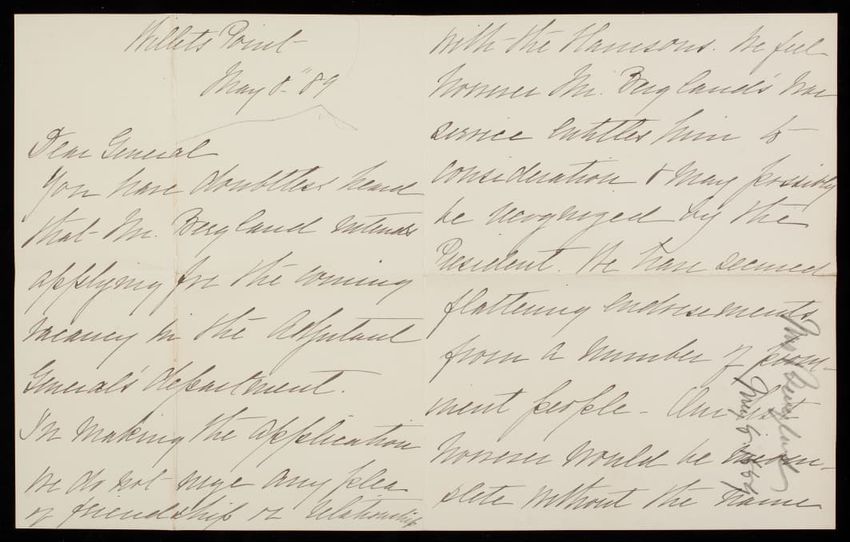 Willets Point
May 8" 89
Dear General
You have doubtless heard
that Mr. Bergland intends
applying for the coming
vacancy in the Adjutant
General's department.
In making the application
we do not urge any plea
of friendship or relationship
with the Harrisons. We feel
however Mr. Bergland's war
service entitles him to
consideration & may possibly
be recognized by the
President. We have secured
flattering endorsements
from a number of prom-
inent people - Our list
however would be incom-
plete without the name
Mrs Bergland
May